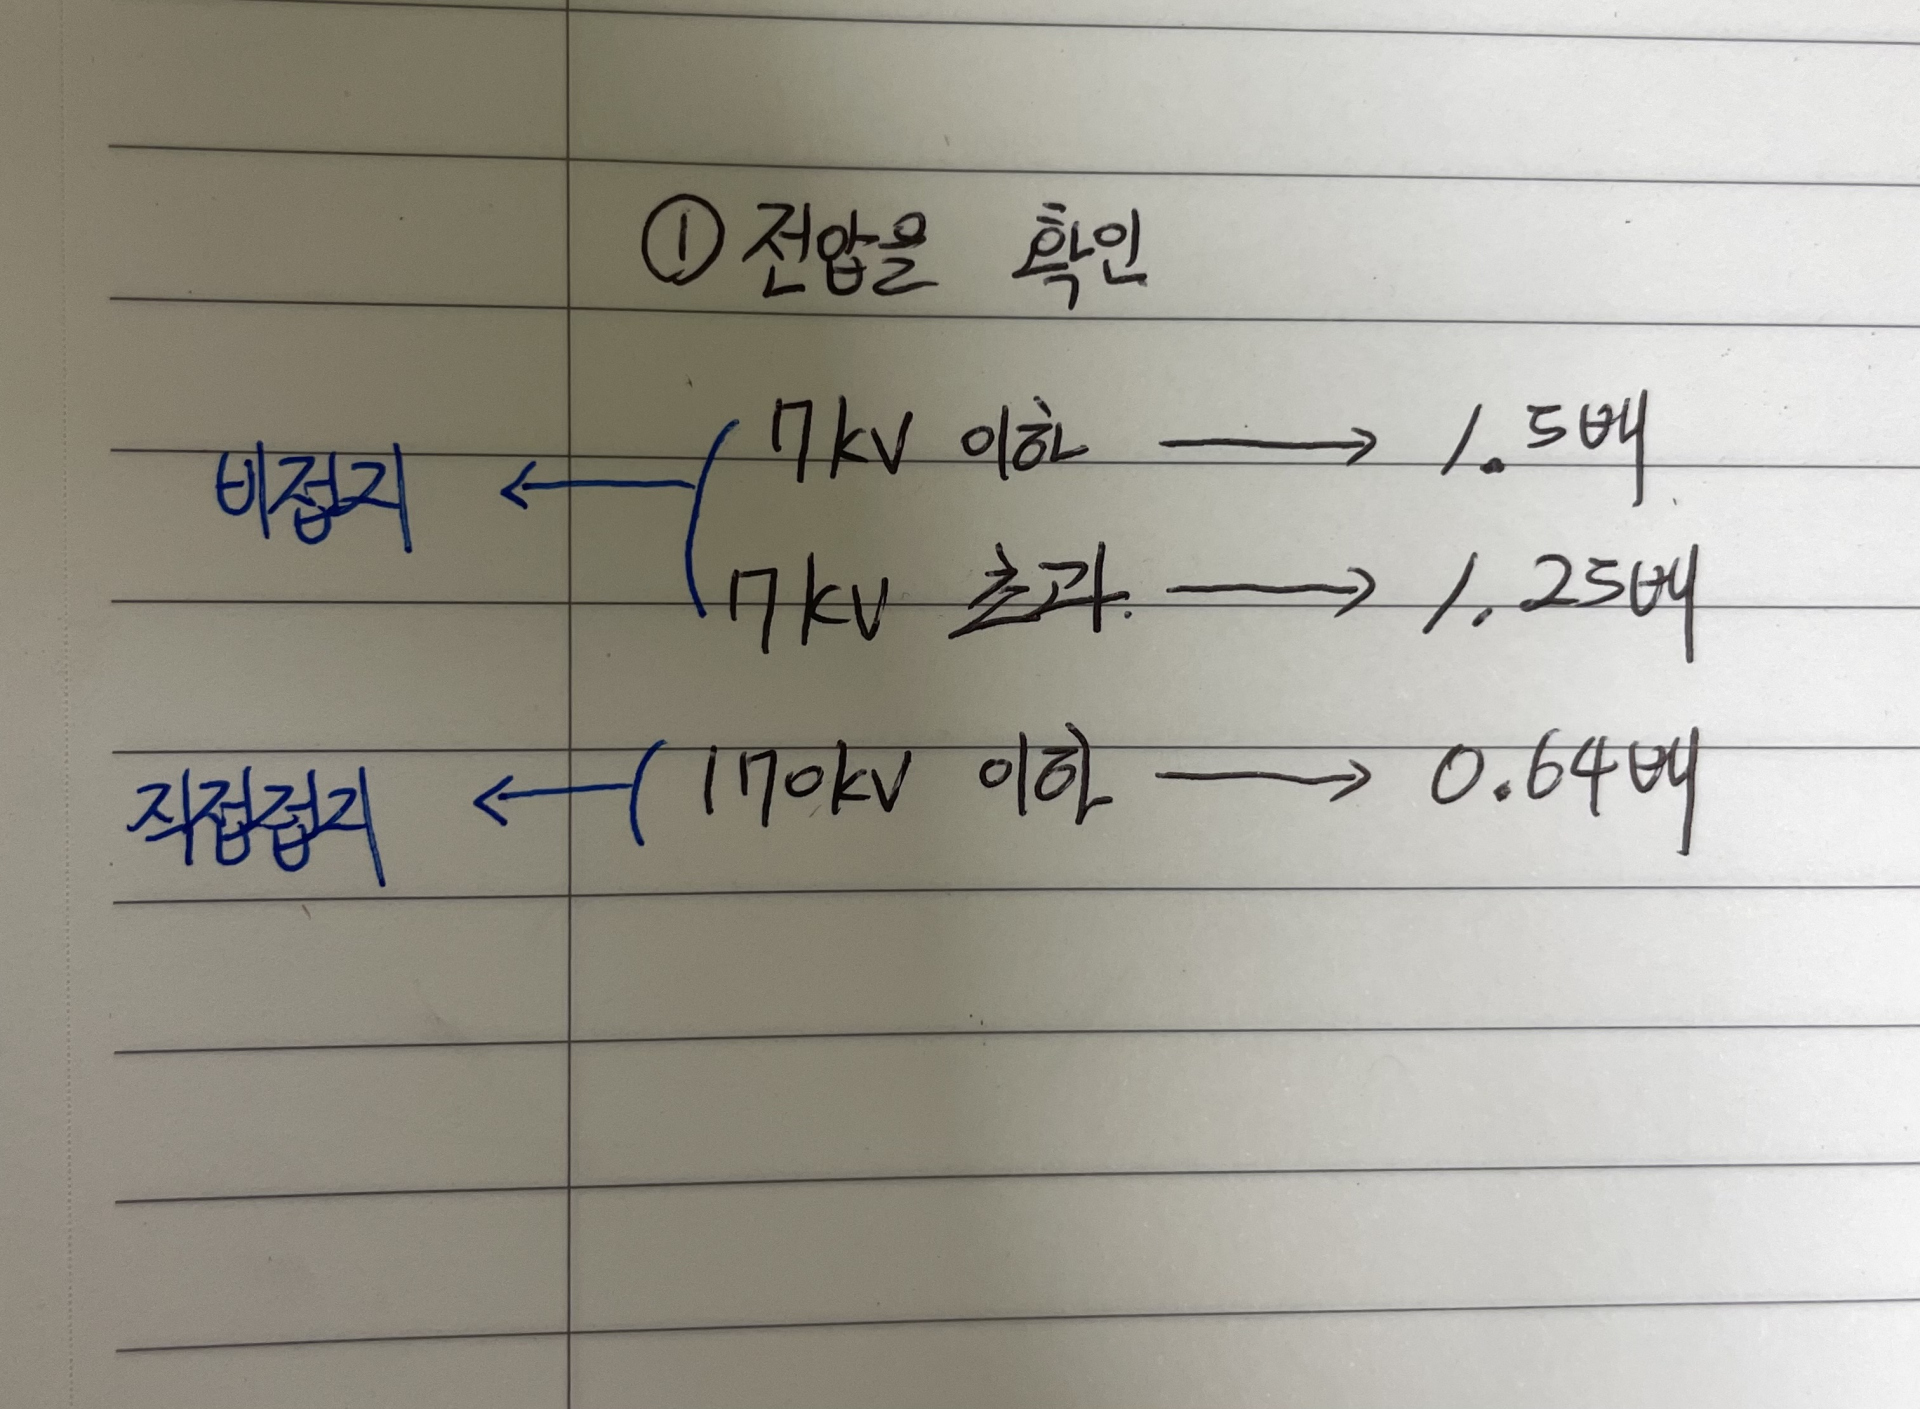 ① 전압을 확인
비접지 ← ( 7kV 이하 → 1.5배
7kV 초과. → 1.25배
직접접지 ← ( 170kV 이하 → 0.64배